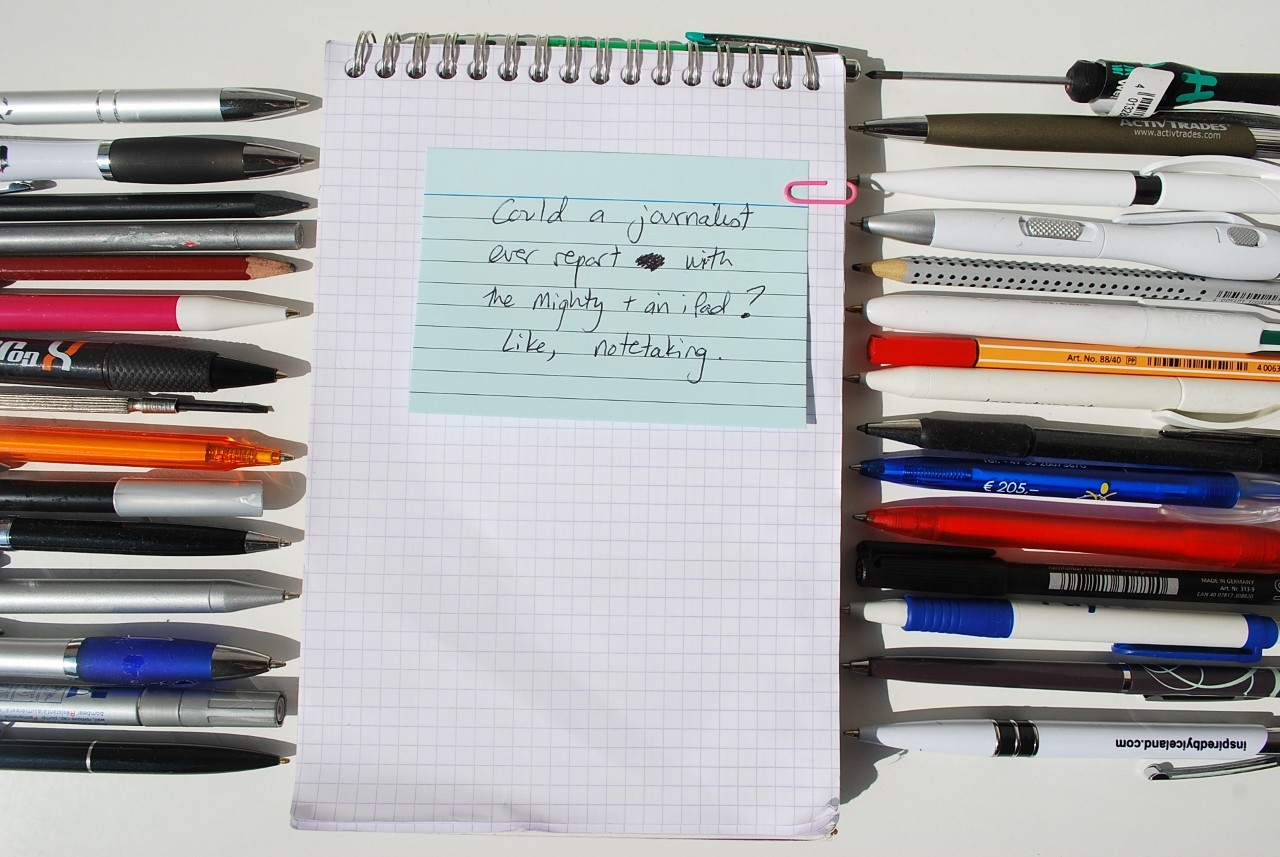 Could a journalist
ever report with
the mighty + an iPad?
Like, notetaking.
4 01328
ACTIVTRADES
www.activtrades.com
Art. No. 88/40 PP
4 0063
€ 205,–
MADE IN GERMANY
Art. Nr. 313-9
EAN 40 07817 308820
inspiredbyiceland.com